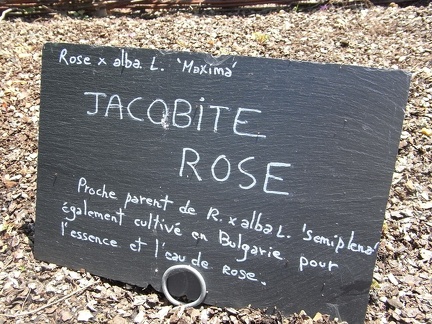 Rose x alba L. 'Maxima'
JACOBITE
ROSE
Proche parent de R. x alba L. 'Semiplena'
également cultivé en Bulgarie pour
l'essence et l'eau de rose.